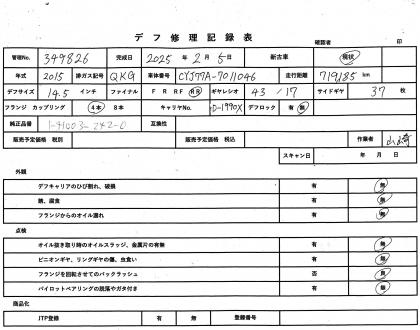 デフ修理記録表
確認者 印
管理No. 349826 完成日 2025年 2月 5日 新古車 現状
年式 2015 排ガス記号 QKG 車体番号 CYJ77A-7011046 走行距離 719,185 km
デフサイズ 14.5 インチ ファイナル F R RF RR ギヤレシオ 43 / 17 サイドギヤ 37 枚
フランジ カップリング 4本 8本 キャリヤNo. D-1990X デフロック 有 無
純正品番 1-41003-242-0 互換性
販売予定価格 税別 販売予定価格 税込 作業者 山崎
スキャン日 年 月 日
外観
デフキャリアのひび割れ、破損 有 無
錆、腐食 有 無
フランジからのオイル漏れ 有 無
点検
オイル抜き取り時のオイルスラッジ、金属片の有無 有 無
ピニオンギヤ、リングギヤの傷、虫食い 有 無
フランジを回転させてのバックラッシュ 否 良
パイロットベアリングの脱落やガタ付き 有 無
商品化
JTP登録 有 無 登録番号